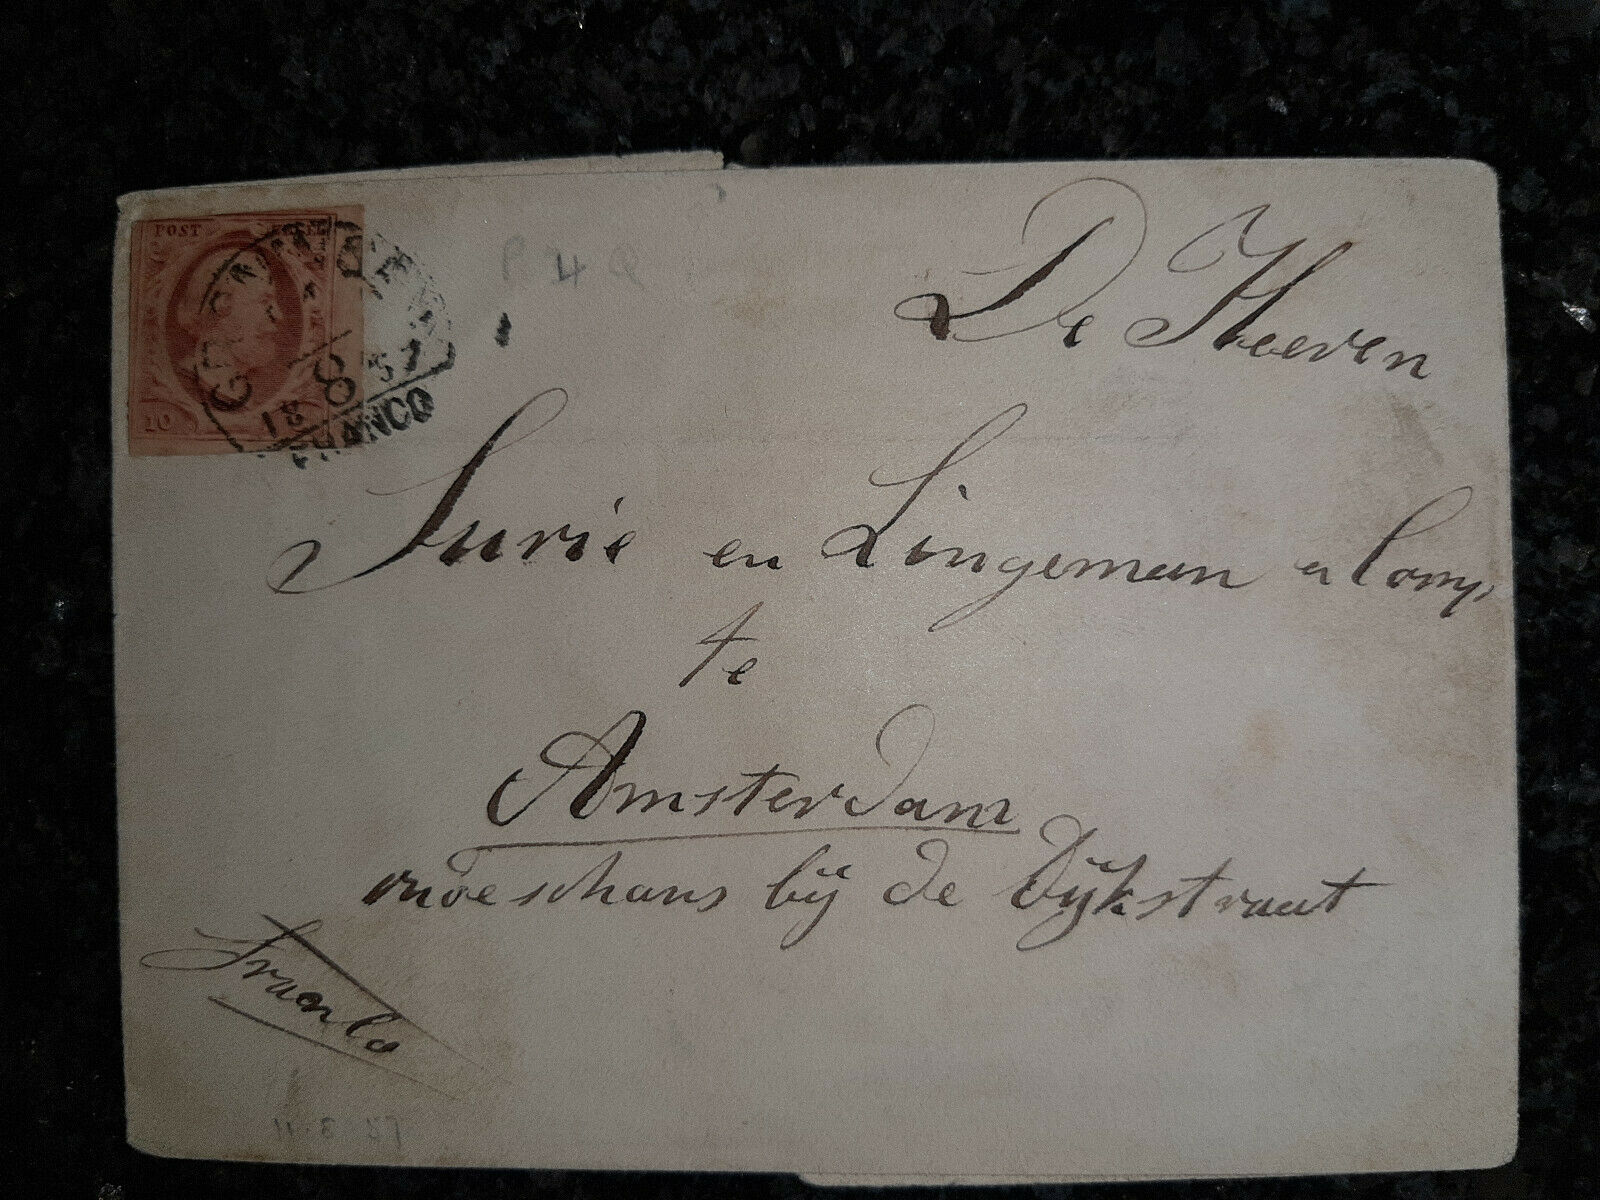 POST
10
18 8 57
FRANCO
P 4 Q
De Heeren
Surie en Lingeman en Comp,
te
Amsterdam
oudeschans bij de Dijkstraat
Franco